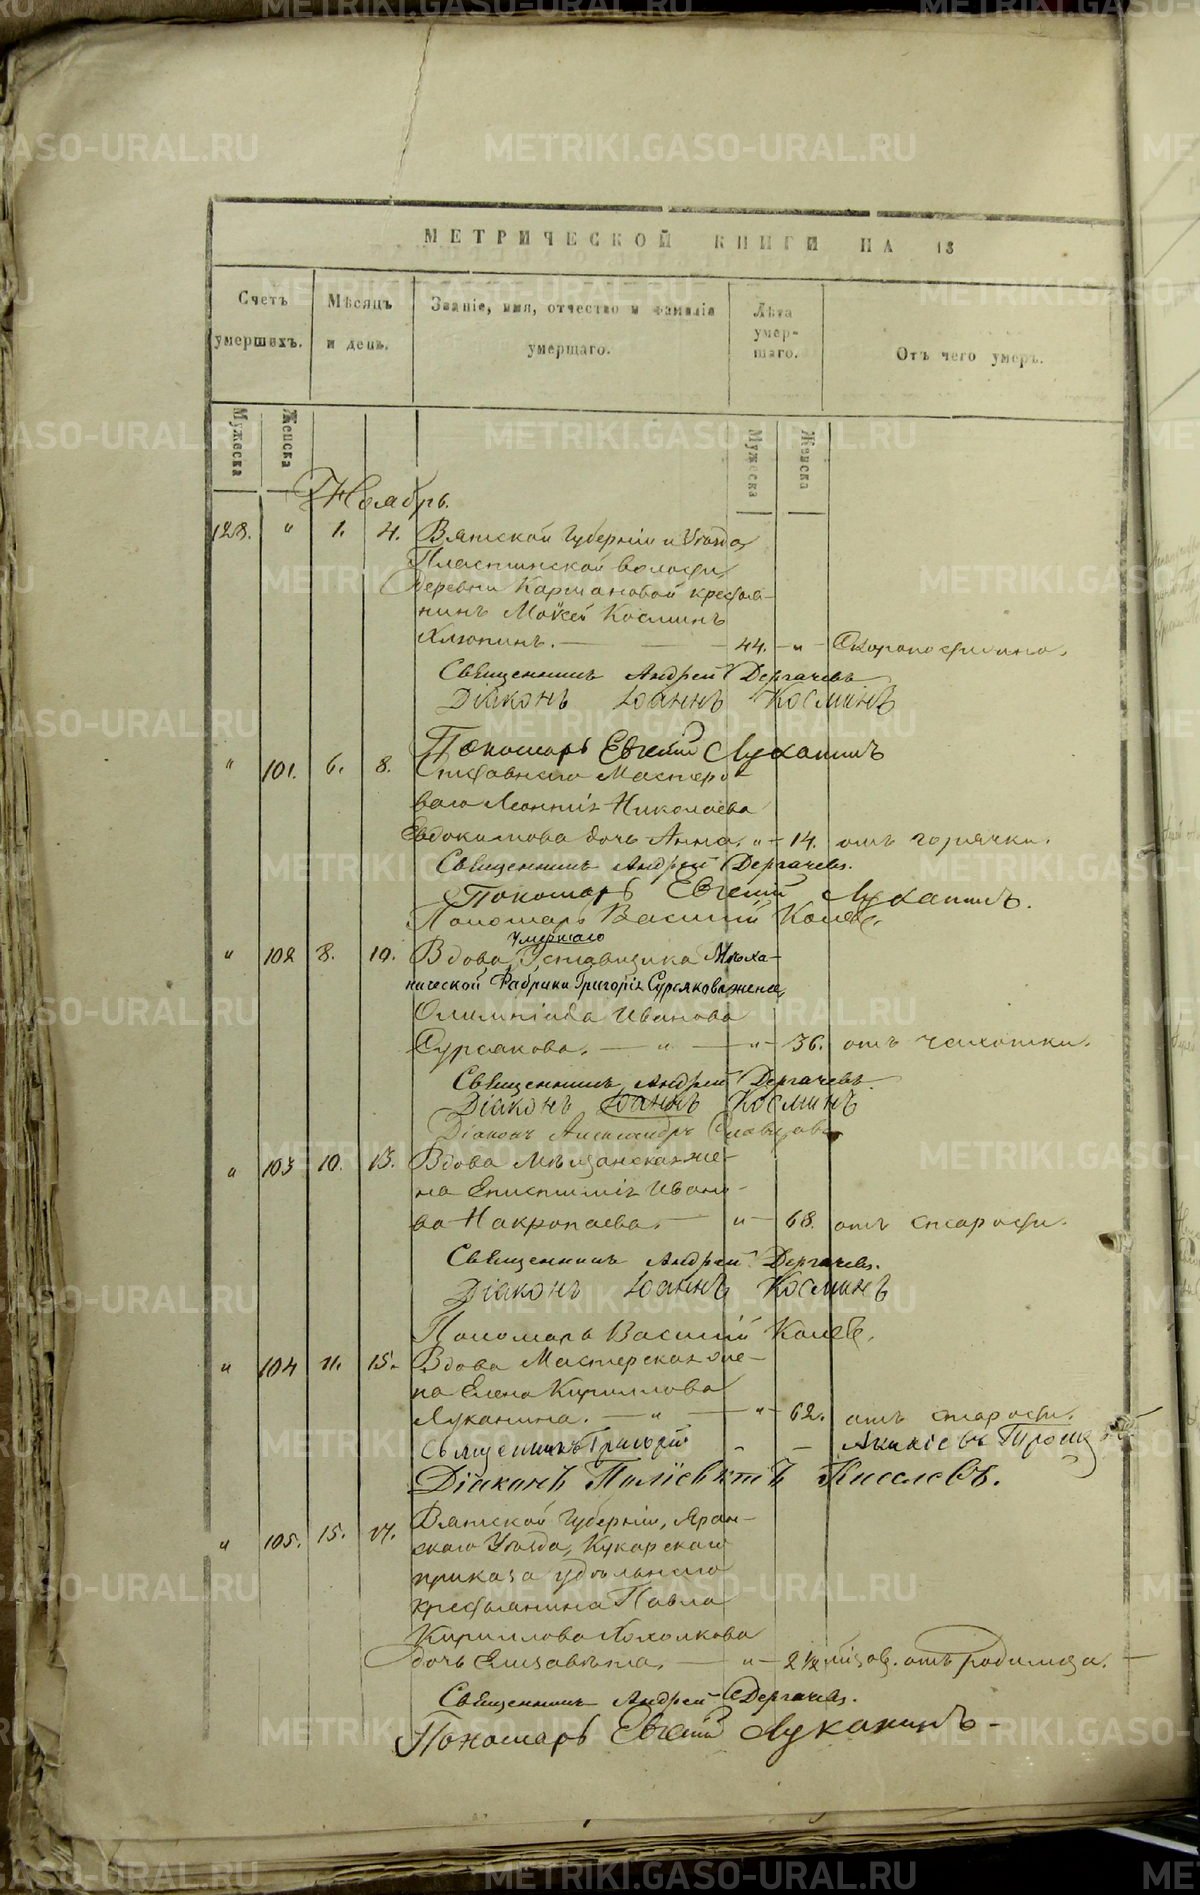 МЕТРИЧЕСКОЙ КНИГИ НА 18
Счетъ умершихъ.
Мѣсяцъ и день.
Званіе, имя, отчество и фамилія умершаго.
Лѣта умершаго.
Отъ чего умеръ.
Мужеска
Женска
Мужеска
Женска
Ноябрь.
128. " 1. 4. Вятской Губерніи и Уѣзда
волости,
деревни крестья-
нинъ Мокей Косминъ
Хлюпинъ. — 44. — " — Скоропостижно.
Священникъ Андрей Дергачевъ
Діаконъ Іоаннъ Косминъ
Пономарь Евгеній Луканинъ
" 101. 6. 8. Мастеро-
ваго Леонтія Николаева
Евдокимова дочь Анна. " — 14. отъ горячки.
Священникъ Андрей Дергачевъ.
Пономарь Евгеній Луканинъ.
Пономарь Василій
умершаго
" 102 8. 10. Вдова Уставщика Меха-
нической Фабрики Григорія Сурсякова жена,
Олимпіада Иванова
Сурсакова. — " — " — 36. отъ чахотки.
Священникъ Андрей Дергачевъ
Діаконъ Іоаннъ Косминъ
Діаконъ Александръ
" 103 10. 13. Вдова Мѣщанская же-
на Епистимія Ивано-
ва Накропаева. — " — 68. отъ старости.
Священникъ Андрей Дергачевъ.
Діаконъ Іоаннъ Косминъ
Пономарь Василій
" 104 11. 15. Вдова Мастерская же-
на Елена Кириллова
Луканина. — " — " — 62. отъ старости.
Священникъ Григорій — —
Діаконъ Поліевктъ Киселевъ.
" 105. 15. 17. Вятской Губерніи, Яран-
скаго Уѣзда, Кукарскаго
приказа удѣльнаго
крестьянина Павла
Кириллова Хохолкова
дочь Елизавета. — " — 2 1/2 мѣсяц. отъ родимца. —
Священникъ Андрей Дергачевъ.
Пономарь Евгеній Луканинъ —
METRIKI.GASO-URAL.RU